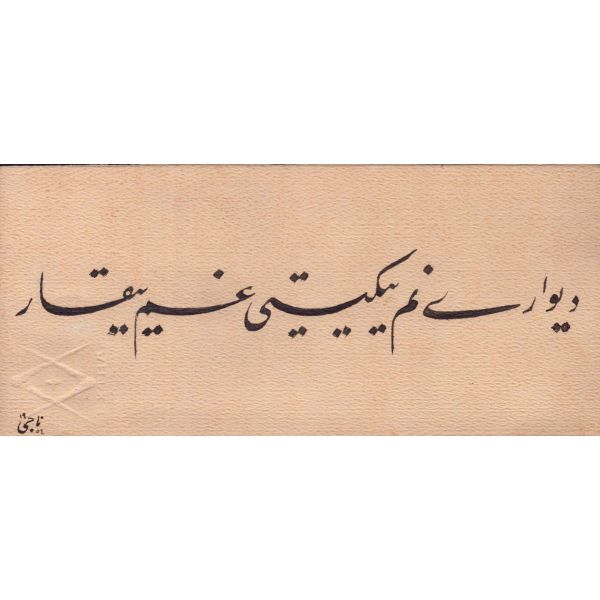 دیواری نم ییکیتی غم ییقار
ناجی